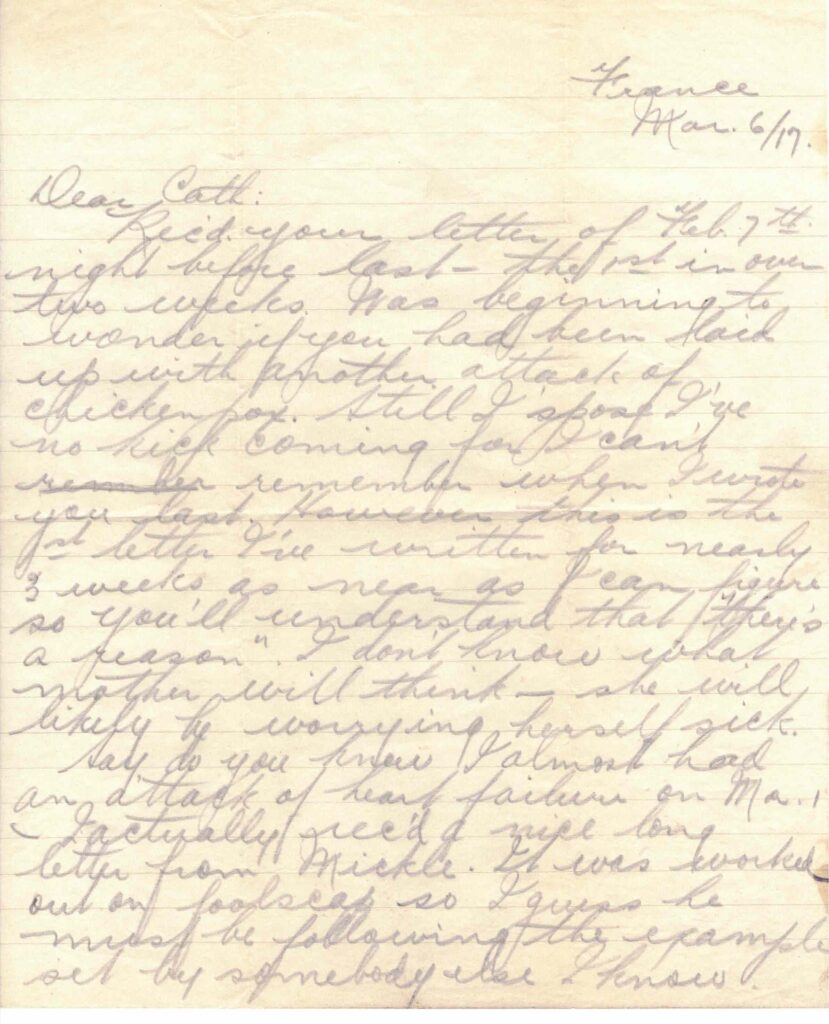 France
Mar. 6/17.
Dear Cath:
Rec'd. your letter of Feb. 7th.
night before last – the 1st in over
two weeks. Was beginning to
wonder if you had been laid
up with another attack of
chickenpox. Still I 'spose I've
no kick coming for I can't
remember when I wrote
you last. However this is the
1st letter I've written for nearly
3 weeks as near as I can figure
so you'll understand that "there's
a reason". I don't know what
mother will think – she will
likely be worrying herself sick.
Say do you know I almost had
an attack of heart failure on Mar. 1
– I actually rec'd a nice long
letter from Mickle. It was worked
out on foolscap so I guess he
must be following the example
set by somebody else I know.